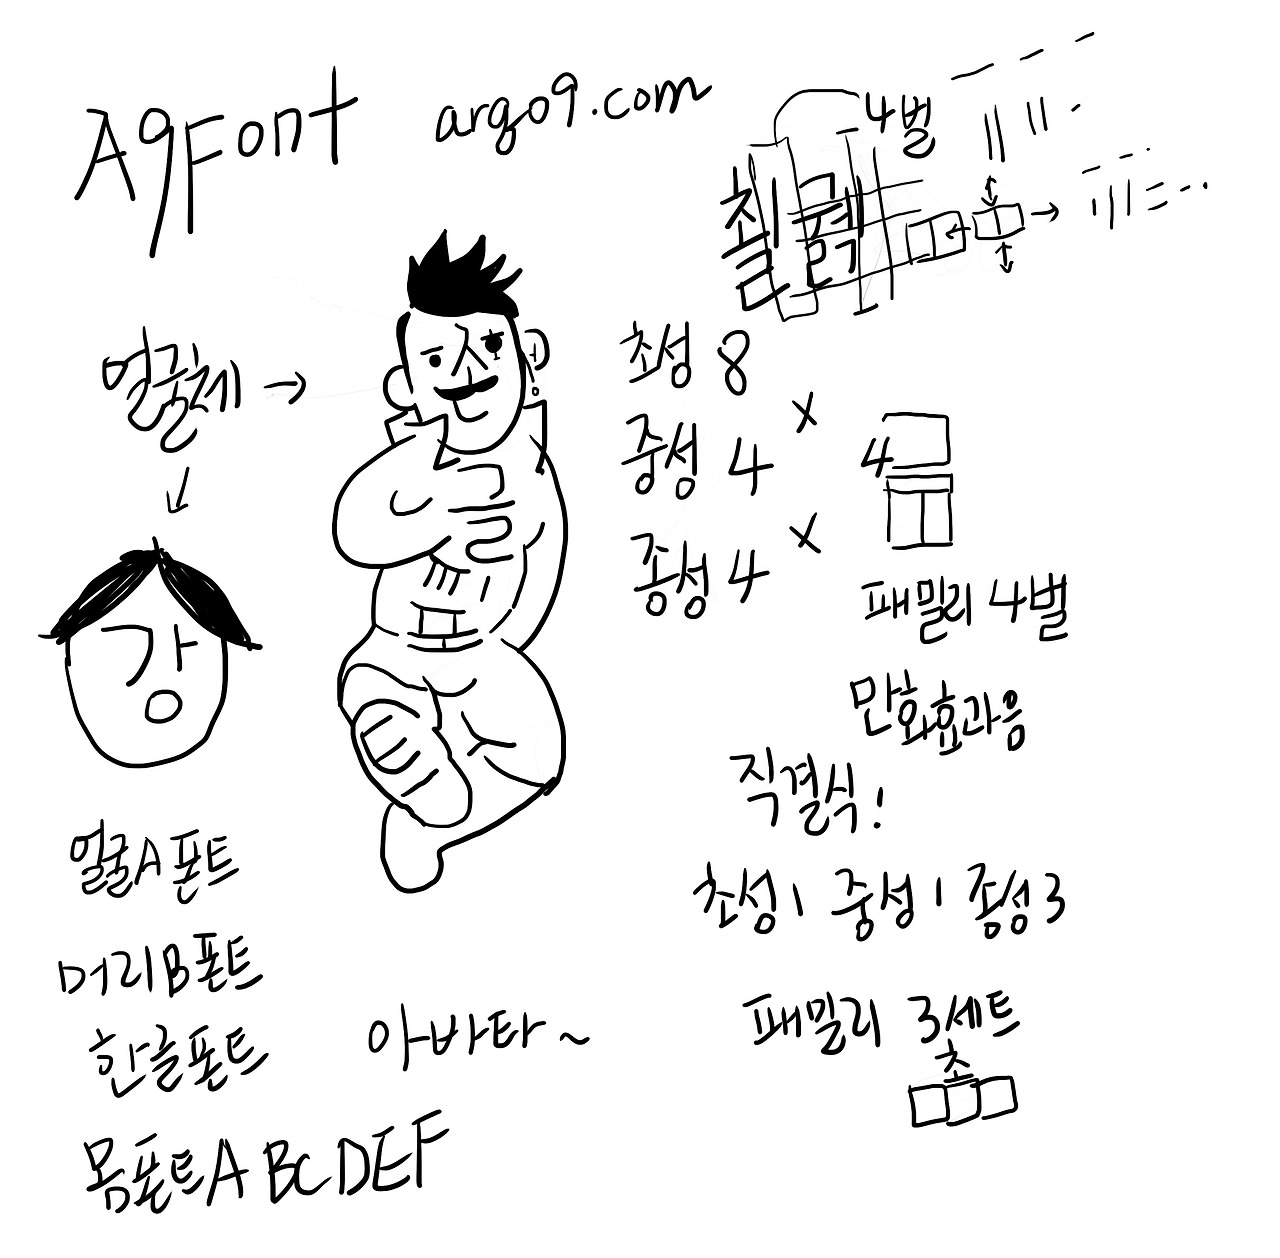 A9Font
argo9.com
4벌
얼굴체 →
강
초성 8
중성 4
종성 4
x
x
4
패밀리 4벌
만화효과음
직결식!
초성 1 중성 1 종성 3
패밀리 3세트
초
얼굴A폰트
머리B폰트
한글폰트
몸폰트ABCDEF
아바타~